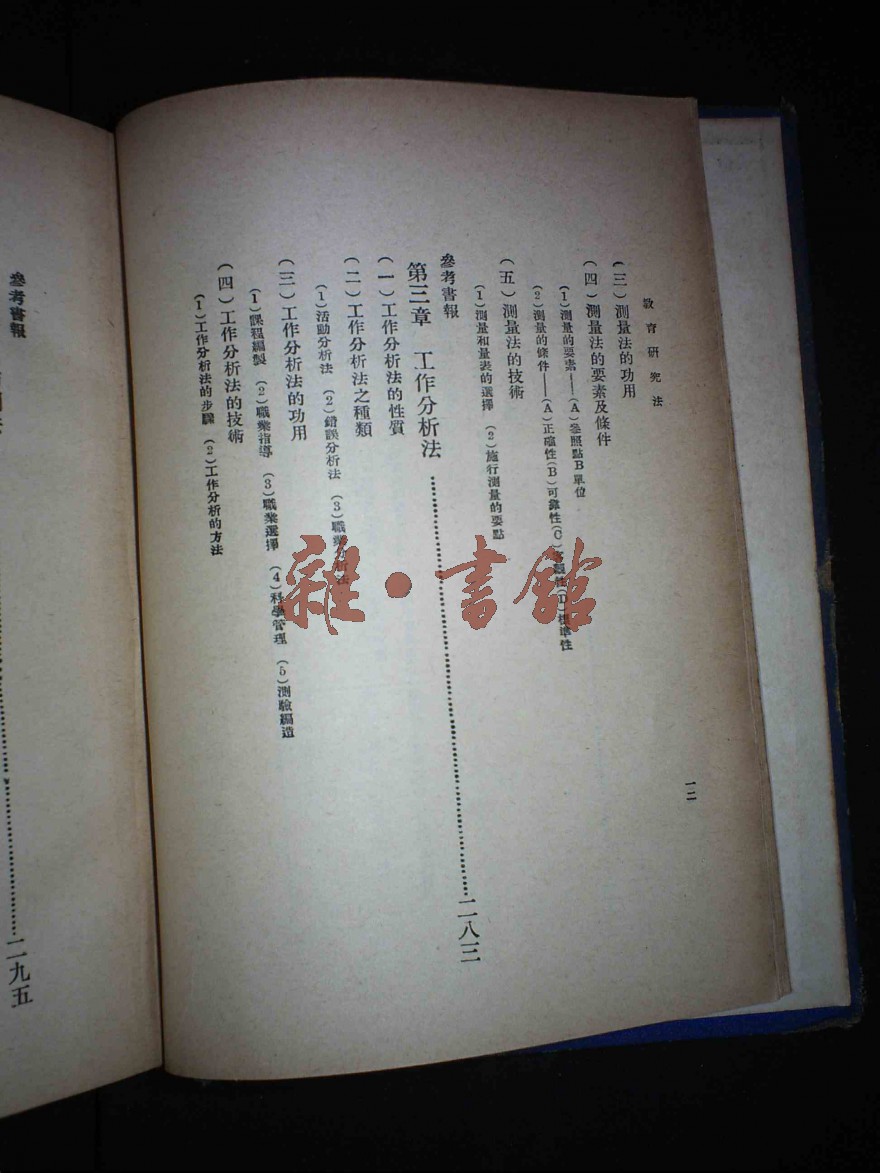 教育研究法
(三)測量法的功用
(四)測量法的要素及條件
(1)測量的要素——(A)參照點B單位
(2)測量的條件——(A)正確性(B)可靠性(C)客觀性(D)標準性
(五)測量法的技術
(1)測量和量表的選擇 (2)施行測量的要點
參考書報
第三章 工作分析法……二八三
(一)工作分析法的性質
(二)工作分析法之種類
(1)活動分析法 (2)錯誤分析法 (3)職業分析法
(三)工作分析法的功用
(1)課程編製 (2)職業指導 (3)職業選擇 (4)科學管理 (5)測驗編造
(四)工作分析法的技術
(1)工作分析法的步驟 (2)工作分析的方法
一二
參考書報
二九五
雜·書館